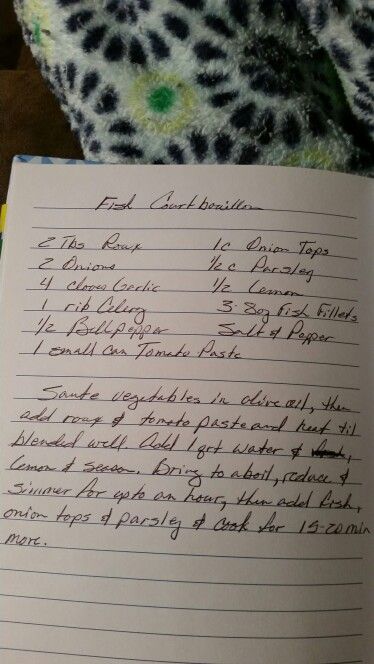 Fish Courtbouillon
2 Tbs Roux 1c Onion Tops
2 Onions ½ c Parsley
4 cloves Garlic ½ Lemon
1 rib Celery 3 8oz Fish Fillets
½ Bellpepper Salt & Pepper
1 small can Tomato Paste
Saute vegetables in olive oil, then
add roux & tomato paste and heat til
blended well. Add 1 qrt water &
lemon & season. Bring to a boil, reduce &
simmer for up to an hour, then add fish,
onion tops & parsley & cook for 15-20 min
more.